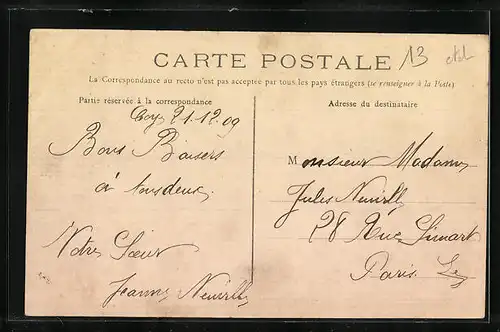 CARTE POSTALE
13
La Correspondance au recto n'est pas acceptée par tous les pays étrangers (se renseigner à la Poste)
Partie réservée à la correspondance
Adresse du destinataire
21-12-09
Bons Baisers
à tousdeux.
Votre Sœur
Jeanne Neuvill
Monsieur Madame
Jules Neuvill
28 Rue Simart
Paris